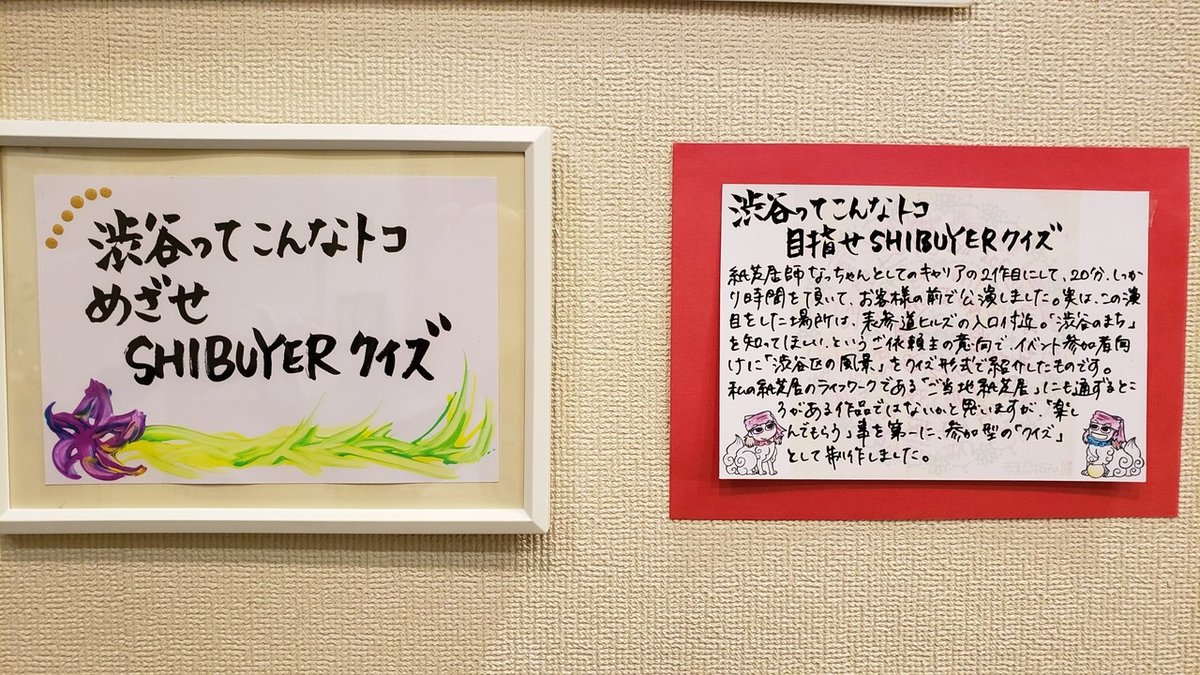 渋谷ってこんなトコ
めざせ
SHIBUYERクイズ
渋谷ってこんなトコ
目指せSHIBUYERクイズ
紙芝居師なっちゃんとしてのキャリアの2作目にして、20分、しっか
り時間を頂いて、お客様の前で公演しました。実は、この演
目をした場所は、表参道ヒルズの入口付近。「渋谷のまち」
を知ってほしい、というご依頼主の意向で、イベント参加者向
けに「渋谷区の風景」をクイズ形式で紹介したものです。
私の紙芝居のライフワークである「ご当地紙芝居」にも通ずるとこ
ろがある作品ではないかと思いますが、「楽し
んでもらう」事を第一に、参加型の「クイズ」
として制作しました。